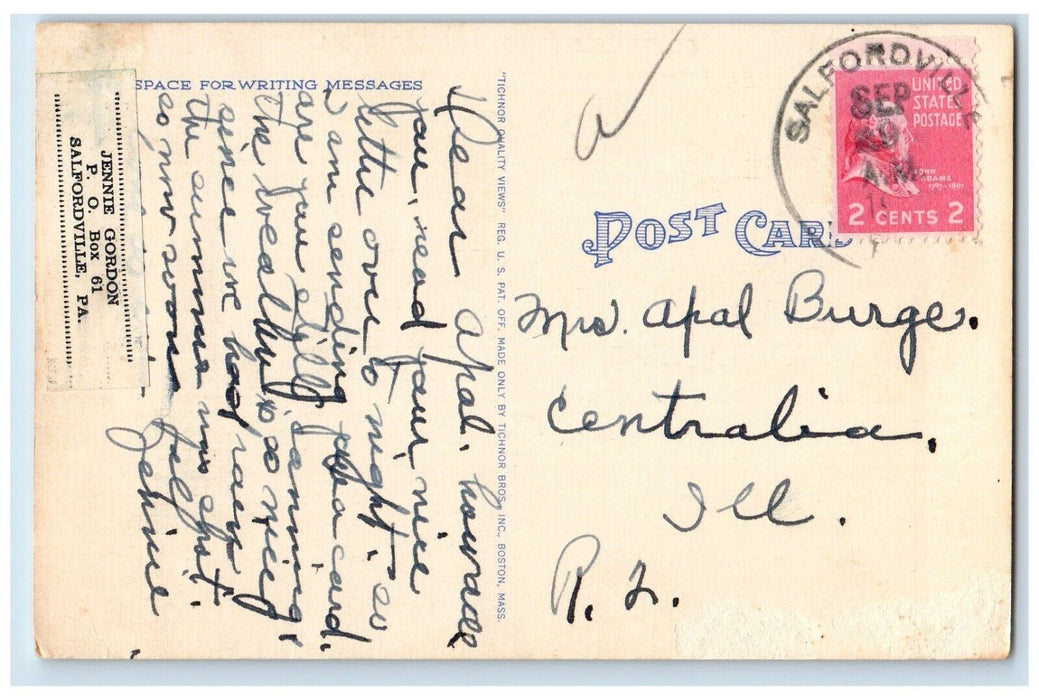 SPACE FOR WRITING MESSAGES
Dear Apal. how are
you. read your nice
letter over to night. so
I am sending you a card.
are you still canning,
the weather is so nice
since we had rain
the summer was short.
so now soon fall
Jennie
JENNIE GORDON
P. O. Box 61
SALFORDVILLE, PA.
"TICHNOR QUALITY VIEWS" REG. U. S. PAT. OFF. MADE ONLY BY TICHNOR BROS., INC., BOSTON, MASS.
POST CARD
SALFORDVILLE
SEP
29
A.M.
UNITED
STATES
POSTAGE
JOHN
ADAMS
1797-1801
2 CENTS 2
Mrs. Apal Burge.
Centralia,
Ill.
R. 2.